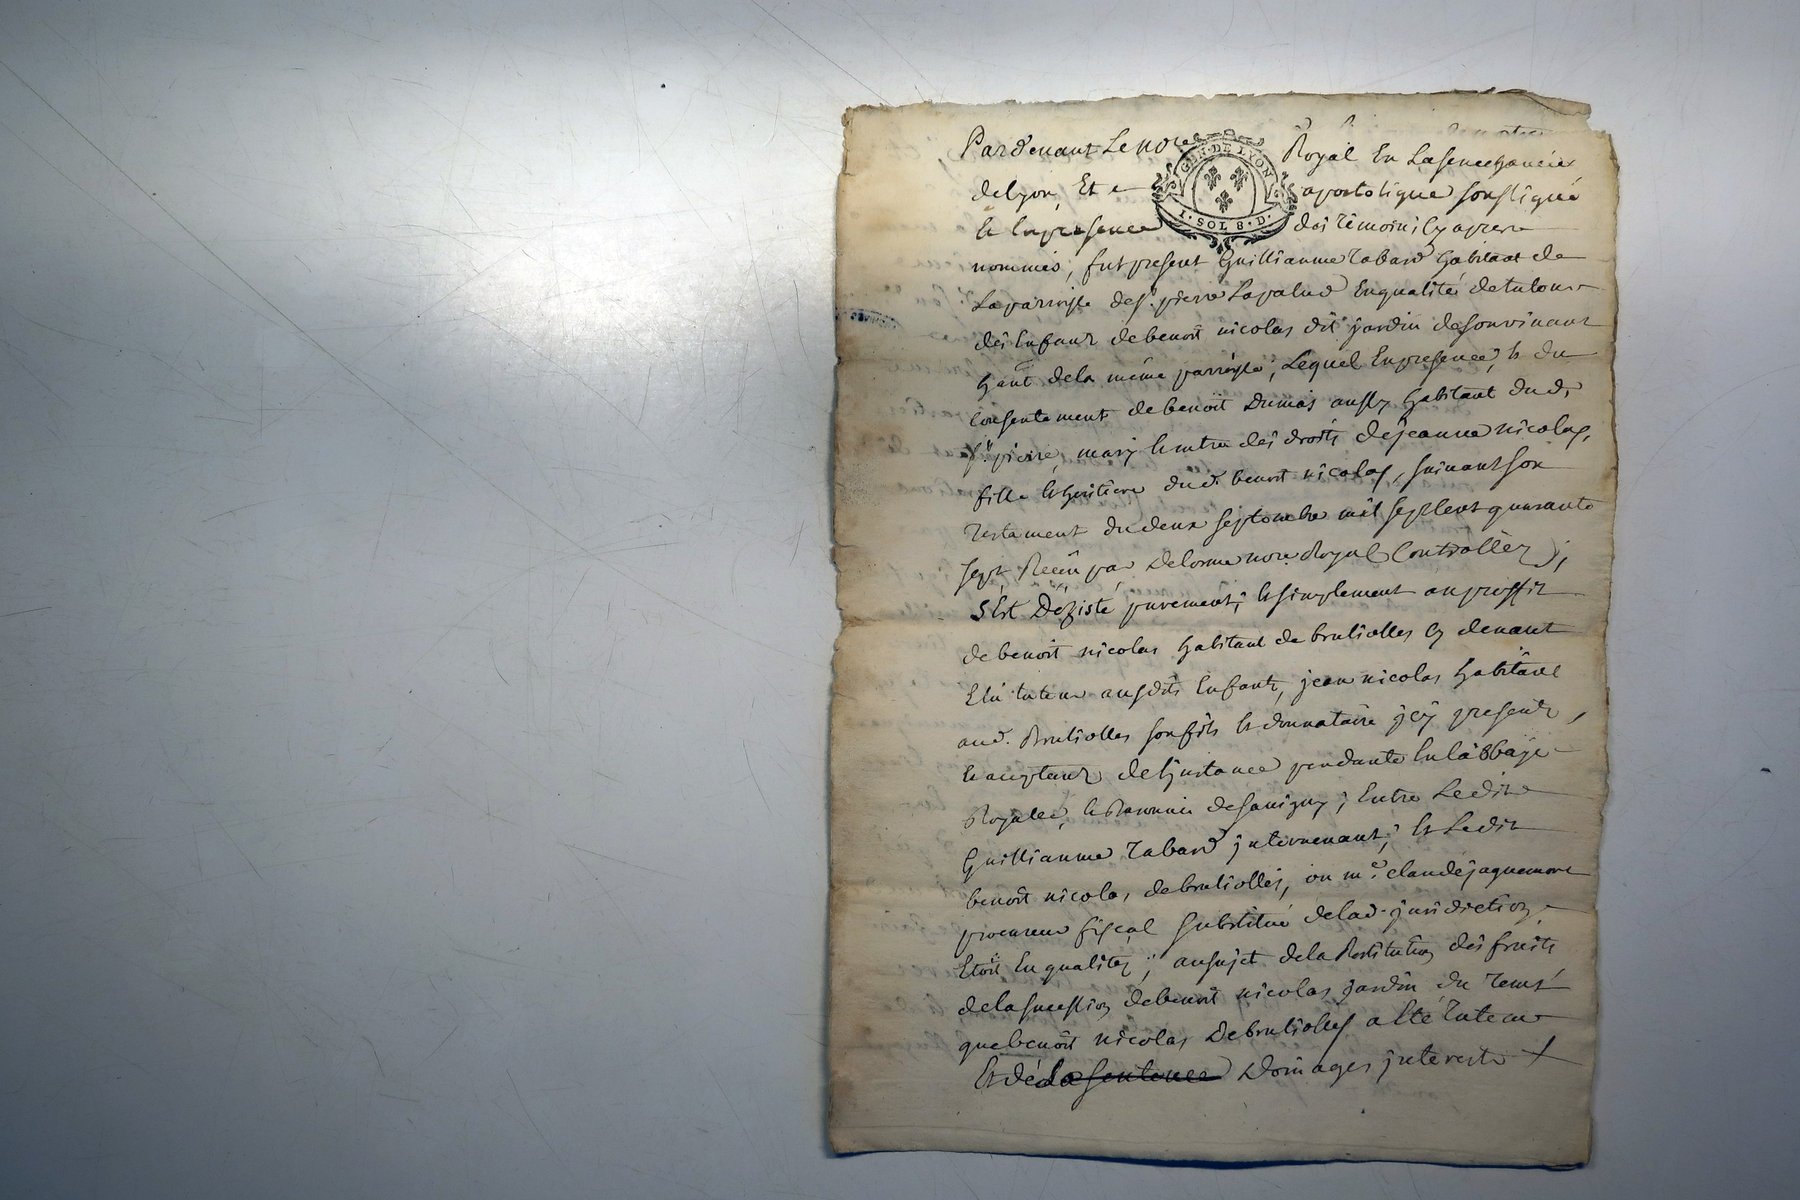 Pardevant Le nore Royal En La senechaucée
GEN · DE LYON
1 · SOL 8 · D ·
de Lyon, Et apostolique soussigné
Et En presence des témoins Cy apres
nommés, fut present Guilliaume Tabard habitant de
La parroisse de st. pierre Lapalud En qualité de tuteur
des Enfans de benoit nicolas dit jardin de souvinant
haut de la même parroisse, Lequel En presence, Et du
Consentement de benoit Dumas aussy habitant dud.
st. pierre, mary Et mtre des droits de jeanne nicolas,
fille Et héritiere dud. benoit nicolas, suivant son
Testament du deux septembre mil sept Cent quarante
sept Recû par Delorme nore Royal Controllez,
S'Est Dézisté purement, Et simplement au proffit
de benoit nicolas habitant de brutiolles Cy devant
Elû tuteur ausdits Enfants, jean nicolas habitant
aud. Brutiolles son fils Et donnataire jcy presents,
Et acceptants de L'jnstance pendante En L'abbaye
Royalle, Et Baronnie de savigny, Entre Ledit
Guilliaume Tabard jntervenant, Et Ledit
benoit nicolas de brutiolles, ou me. claude jaquemont
procureur fiscal substitué de lad. jurisdiction
Etoit En qualité, au sujet de la Restitution des fruits
de la succession de benoit nicolas jardin du Tems
que benoit nicolas De brutiolles a Eté Tuteur
Et dé la sentence Domages jnterests